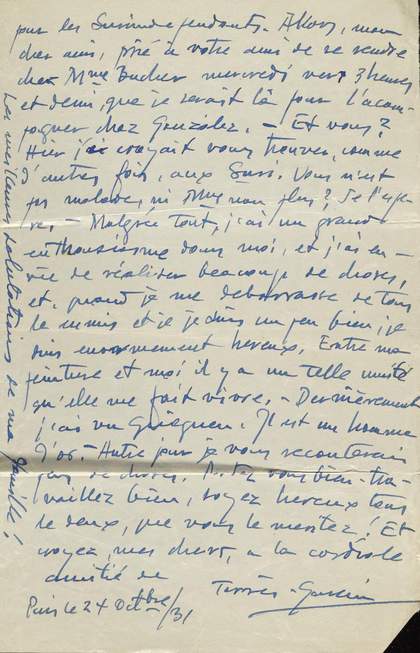 par les Surindependants. Allors, mon
cher ami, prié a votre ami de se rendre
chez Mme Bucher mercredi vers 3 heures
et demi, que je serait là pour l'acom-
pagner chez González. — Et vous?
Hier j'ai croyait vous trouver, comme
d'autres fois, aux Suri. Vous n'est
pas malade, ni Mme non plus? Je l'espe-
re. — Malgré tout, j'ai un grand
enthousiasme dans moi, et j'ai en-
vie de réaliser beaucoup de choses,
et, quand je me debarrasse de tous
le ennuis et je un peu bien, je
suis enormement hereux. Entre ma
peinture et moi il y a un telle unité
qu'elle me fait vivre. — Dernièrement
j'ai vu Il est un homme
d'or. — Autre jour je vous racouterais
plus de choses. Portez vous bien - tra-
vaillez bien, soyez hereux tous
le deux, que vous le meritez! Et
croyez, mes chers, a la cordiale
amitié de
Torrès-García
Paris le 24 Octbre/31
Les meilleures salutations de ma famille!